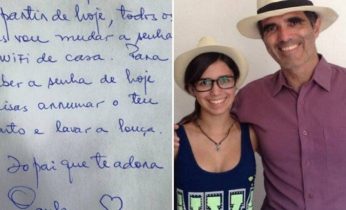 partir de hoje, todos os
vou mudar a senha
wifi de casa. Para
ber a senha de hoje
isas arrumar o teu
to e lavar a louça.
Do pai que te adora